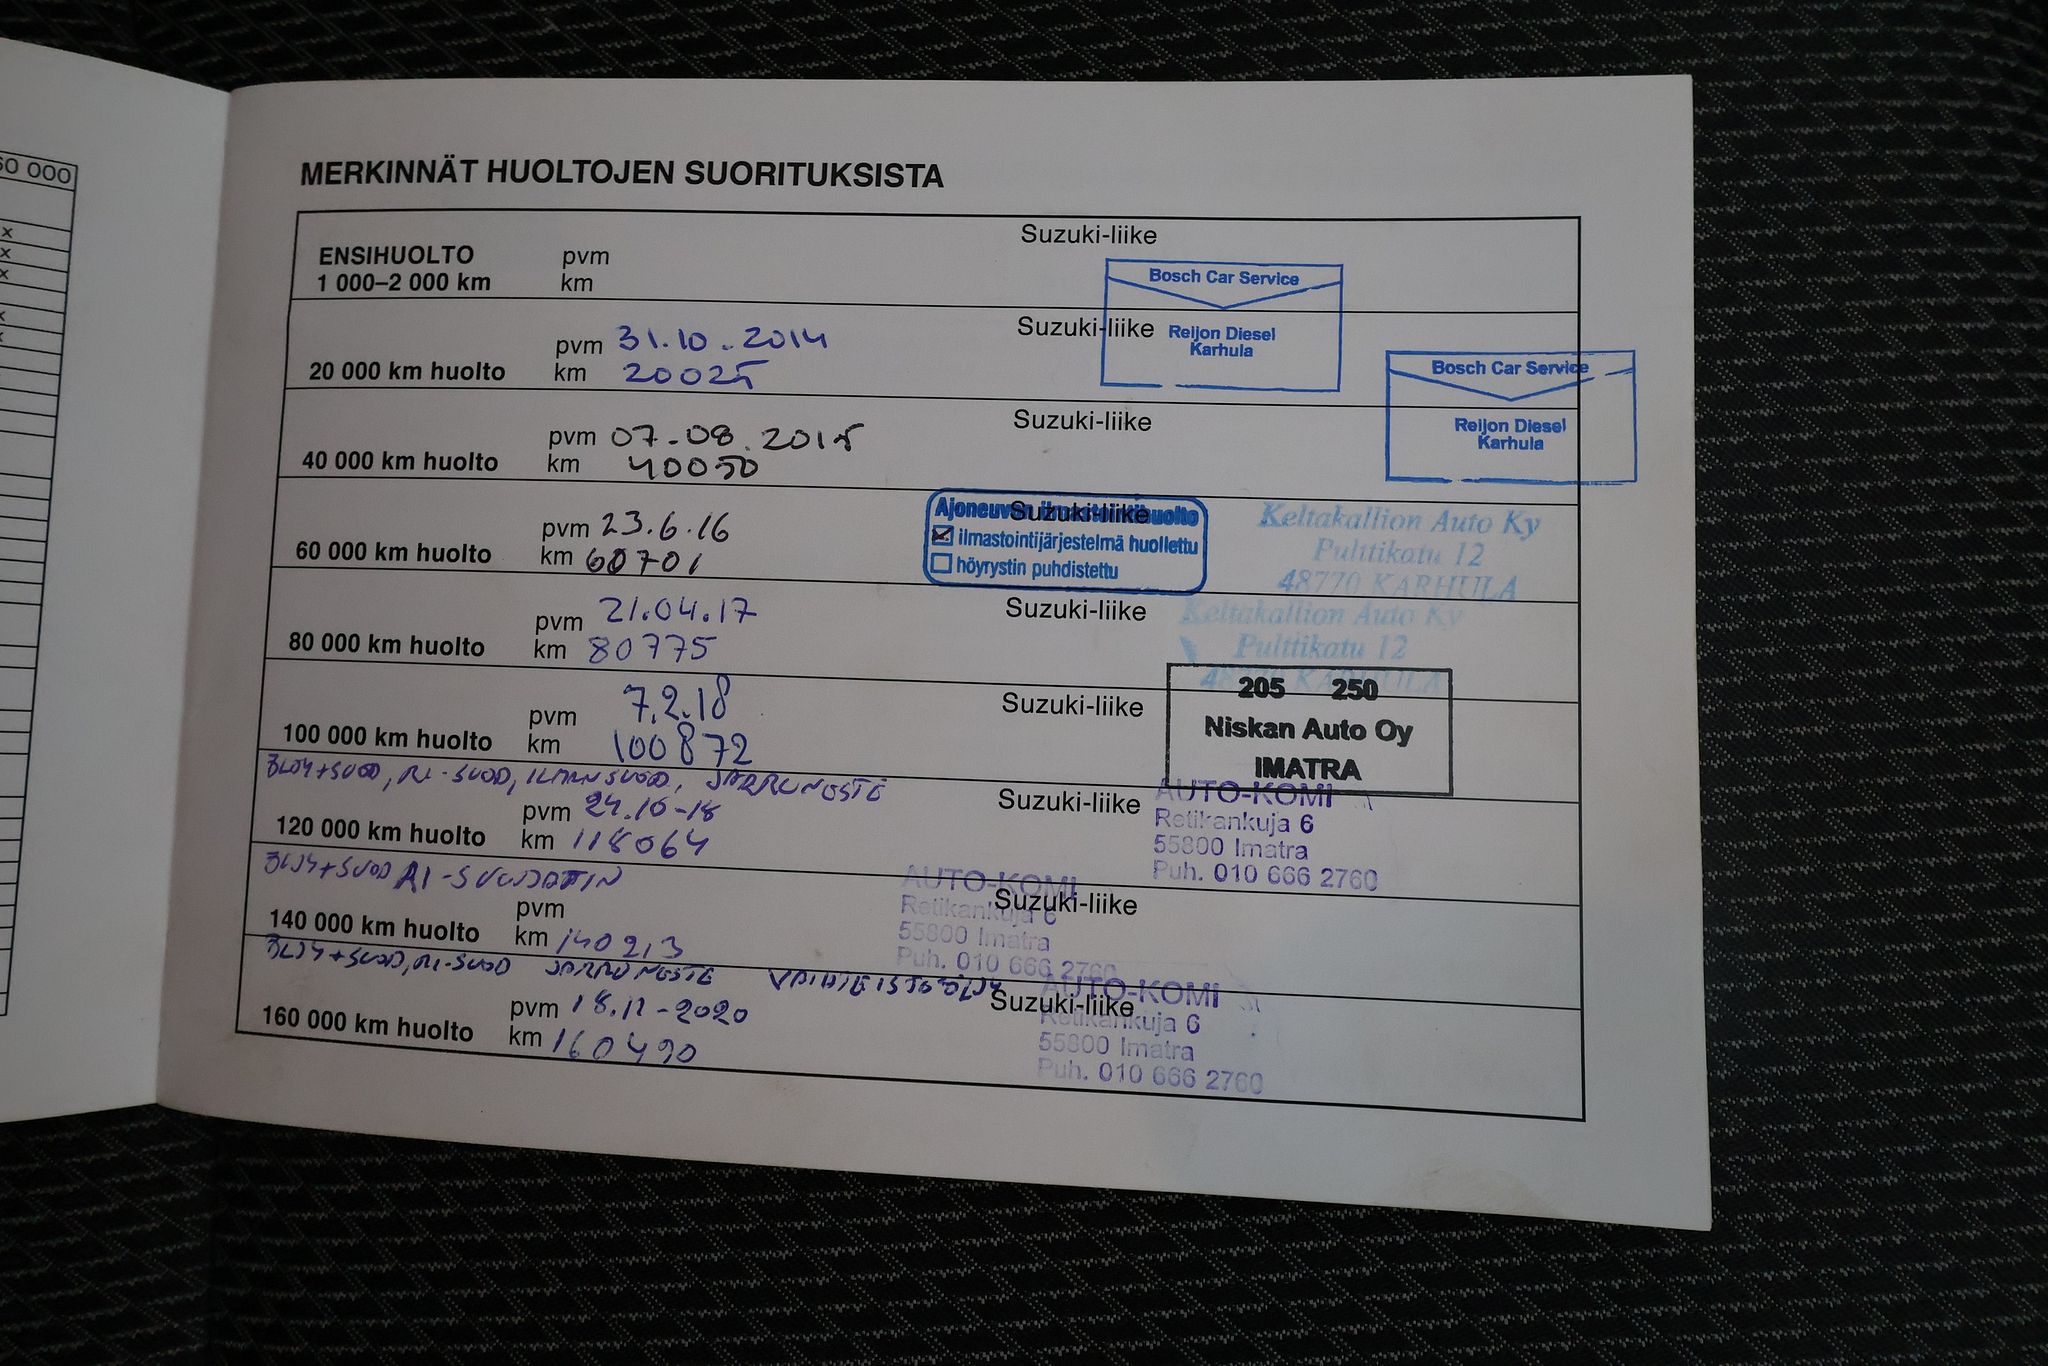 60 000
x
x
x
x
x
MERKINNÄT HUOLTOJEN SUORITUKSISTA
ENSIHUOLTO
1 000–2 000 km
pvm
km
Suzuki-liike
Bosch Car Service
Reijon Diesel
Karhula
20 000 km huolto
pvm 31.10.2014
km 20025
Suzuki-liike
Bosch Car Service
Reijon Diesel
Karhula
40 000 km huolto
pvm 07-08.2015
km 40050
Suzuki-liike
60 000 km huolto
pvm 23.6.16
km 60701
Suzuki-liike
Ajoneuvon ilmastointihuolto
ilmastointijärjestelmä huollettu
höyrystin puhdistettu
Keltakallion Auto Ky
Pulttikatu 12
48770 KARHULA
80 000 km huolto
pvm 21.04.17
km 80775
Suzuki-liike
Keltakallion Auto Ky
Pulttikatu 12
48770 KARHULA
100 000 km huolto
pvm 7.2.18
km 100872
Suzuki-liike
205 250
Niskan Auto Oy
IMATRA
ÖLJY+SUOD, RI-SUOD, ILMANSUOD, JARRUNESTE
120 000 km huolto
pvm 24.10-18
km 118064
Suzuki-liike
AUTO-KOMI
Retikankuja 6
55800 Imatra
Puh. 010 666 2760
ÖLJY+SUOD RI-SUODATIN
140 000 km huolto
pvm
km 140213
Suzuki-liike
AUTO-KOMI
Retikankuja 6
55800 Imatra
Puh. 010 666 2760
ÖLJY+SUOD, RI-SUOD JARRUNESTE VAIHTEISTOÖLJY
160 000 km huolto
pvm 18.11-2020
km 160490
Suzuki-liike
AUTO-KOMI
Retikankuja 6
55800 Imatra
Puh. 010 666 2760